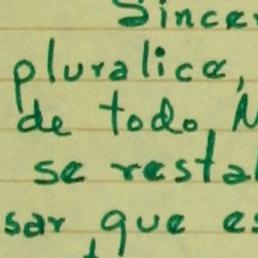 Since
pluralice,
de todo. N
se resta
sar que es